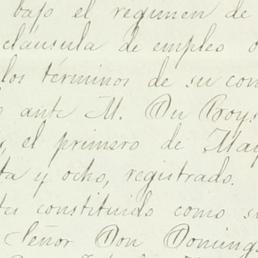 bajo el regimen de
cláusula de empleo o
los términos de su con
ante M. Du Boys
, el primero de May
ta y ocho, registrado.
tes constituido como su
Señor Don Doming